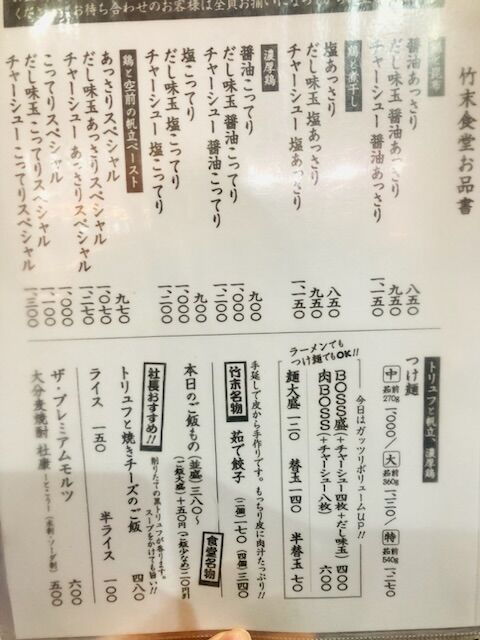 竹末食堂お品書
鶏と昆布
醤油あっさり 八五〇
だし味玉 醤油あっさり 九五〇
チャーシュー 醤油あっさり 一、一五〇
鶏と煮干し
塩あっさり 八五〇
だし味玉 塩あっさり 九五〇
チャーシュー 塩あっさり 一、一五〇
濃厚鶏
醤油こってり 九〇〇
だし味玉 醤油こってり 一、〇〇〇
チャーシュー 醤油こってり 一、二〇〇
塩こってり 九〇〇
だし味玉 塩こってり 一、〇〇〇
チャーシュー 塩こってり 一、二〇〇
鶏と空前の帆立ペースト
あっさりスペシャル 九七〇
だし味玉あっさりスペシャル 一、〇七〇
チャーシュー あっさりスペシャル 一、二七〇
こってりスペシャル 一、〇〇〇
だし味玉 こってりスペシャル 一、一〇〇
チャーシュー こってりスペシャル 一、三〇〇
トリュフと帆立 濃厚鶏
つけ麺
中 茹前270g 一、〇〇〇/大 茹前360g 一、一二〇/特 茹前540g 一、二七〇
ラーメンでも
つけ麺でもOK!!
今日はガッツリボリュームup!!
BOSS盛(+チャーシュー四枚+だし味玉) 四〇〇
肉BOSS(+チャーシュー八枚) 六〇〇
麺大盛 一二〇 替玉 一四〇 半替玉 七〇
手延しで皮から手作りです。もっちり皮に肉汁たっぷり!!
竹末名物 茹で餃子 (二個)一七〇 (四個)三四〇
食堂名物
本日のご飯もの(並盛)三八〇〜
(ご飯大盛)+五〇円(ご飯少なめ)二〇円引
社長おすすめ!!
削りたての黒トリュフが香ります。
スープをかけても旨い!!
トリュフと焼きチーズのご飯 四八〇
ライス 一五〇 半ライス 一〇〇
ザ・プレミアムモルツ 六〇〇
大分麦焼酎 杜康 〜とこう〜(水割・ソーダ割) 五〇〇